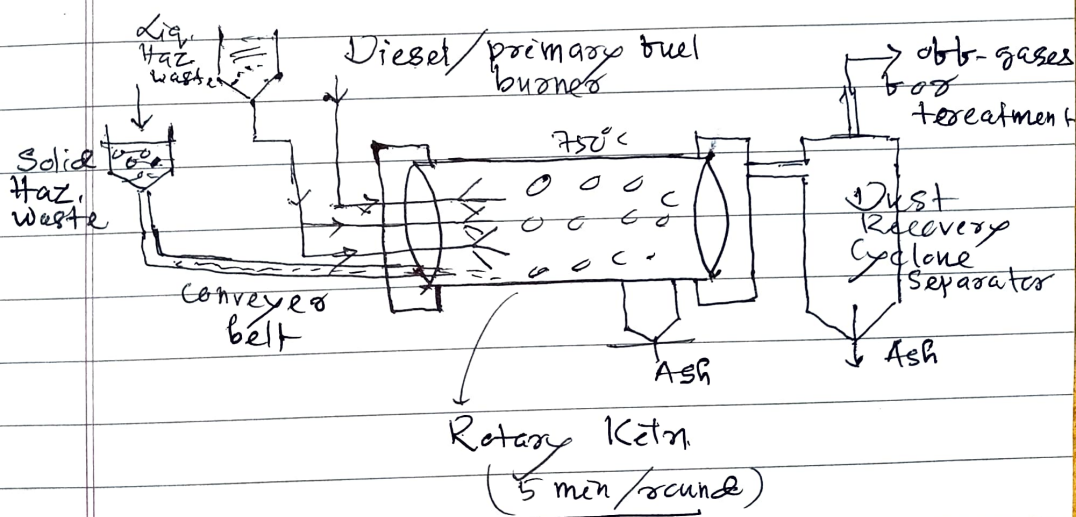 Liq.
Haz
waste
Diesel/primary fuel
burner
off-gases
for
treatment
Solid
Haz.
waste
750°C
Dust
Recovery
Cyclone
Separator
Conveyer
belt
Ash
Ash
Rotary Kiln
(5 min/round)